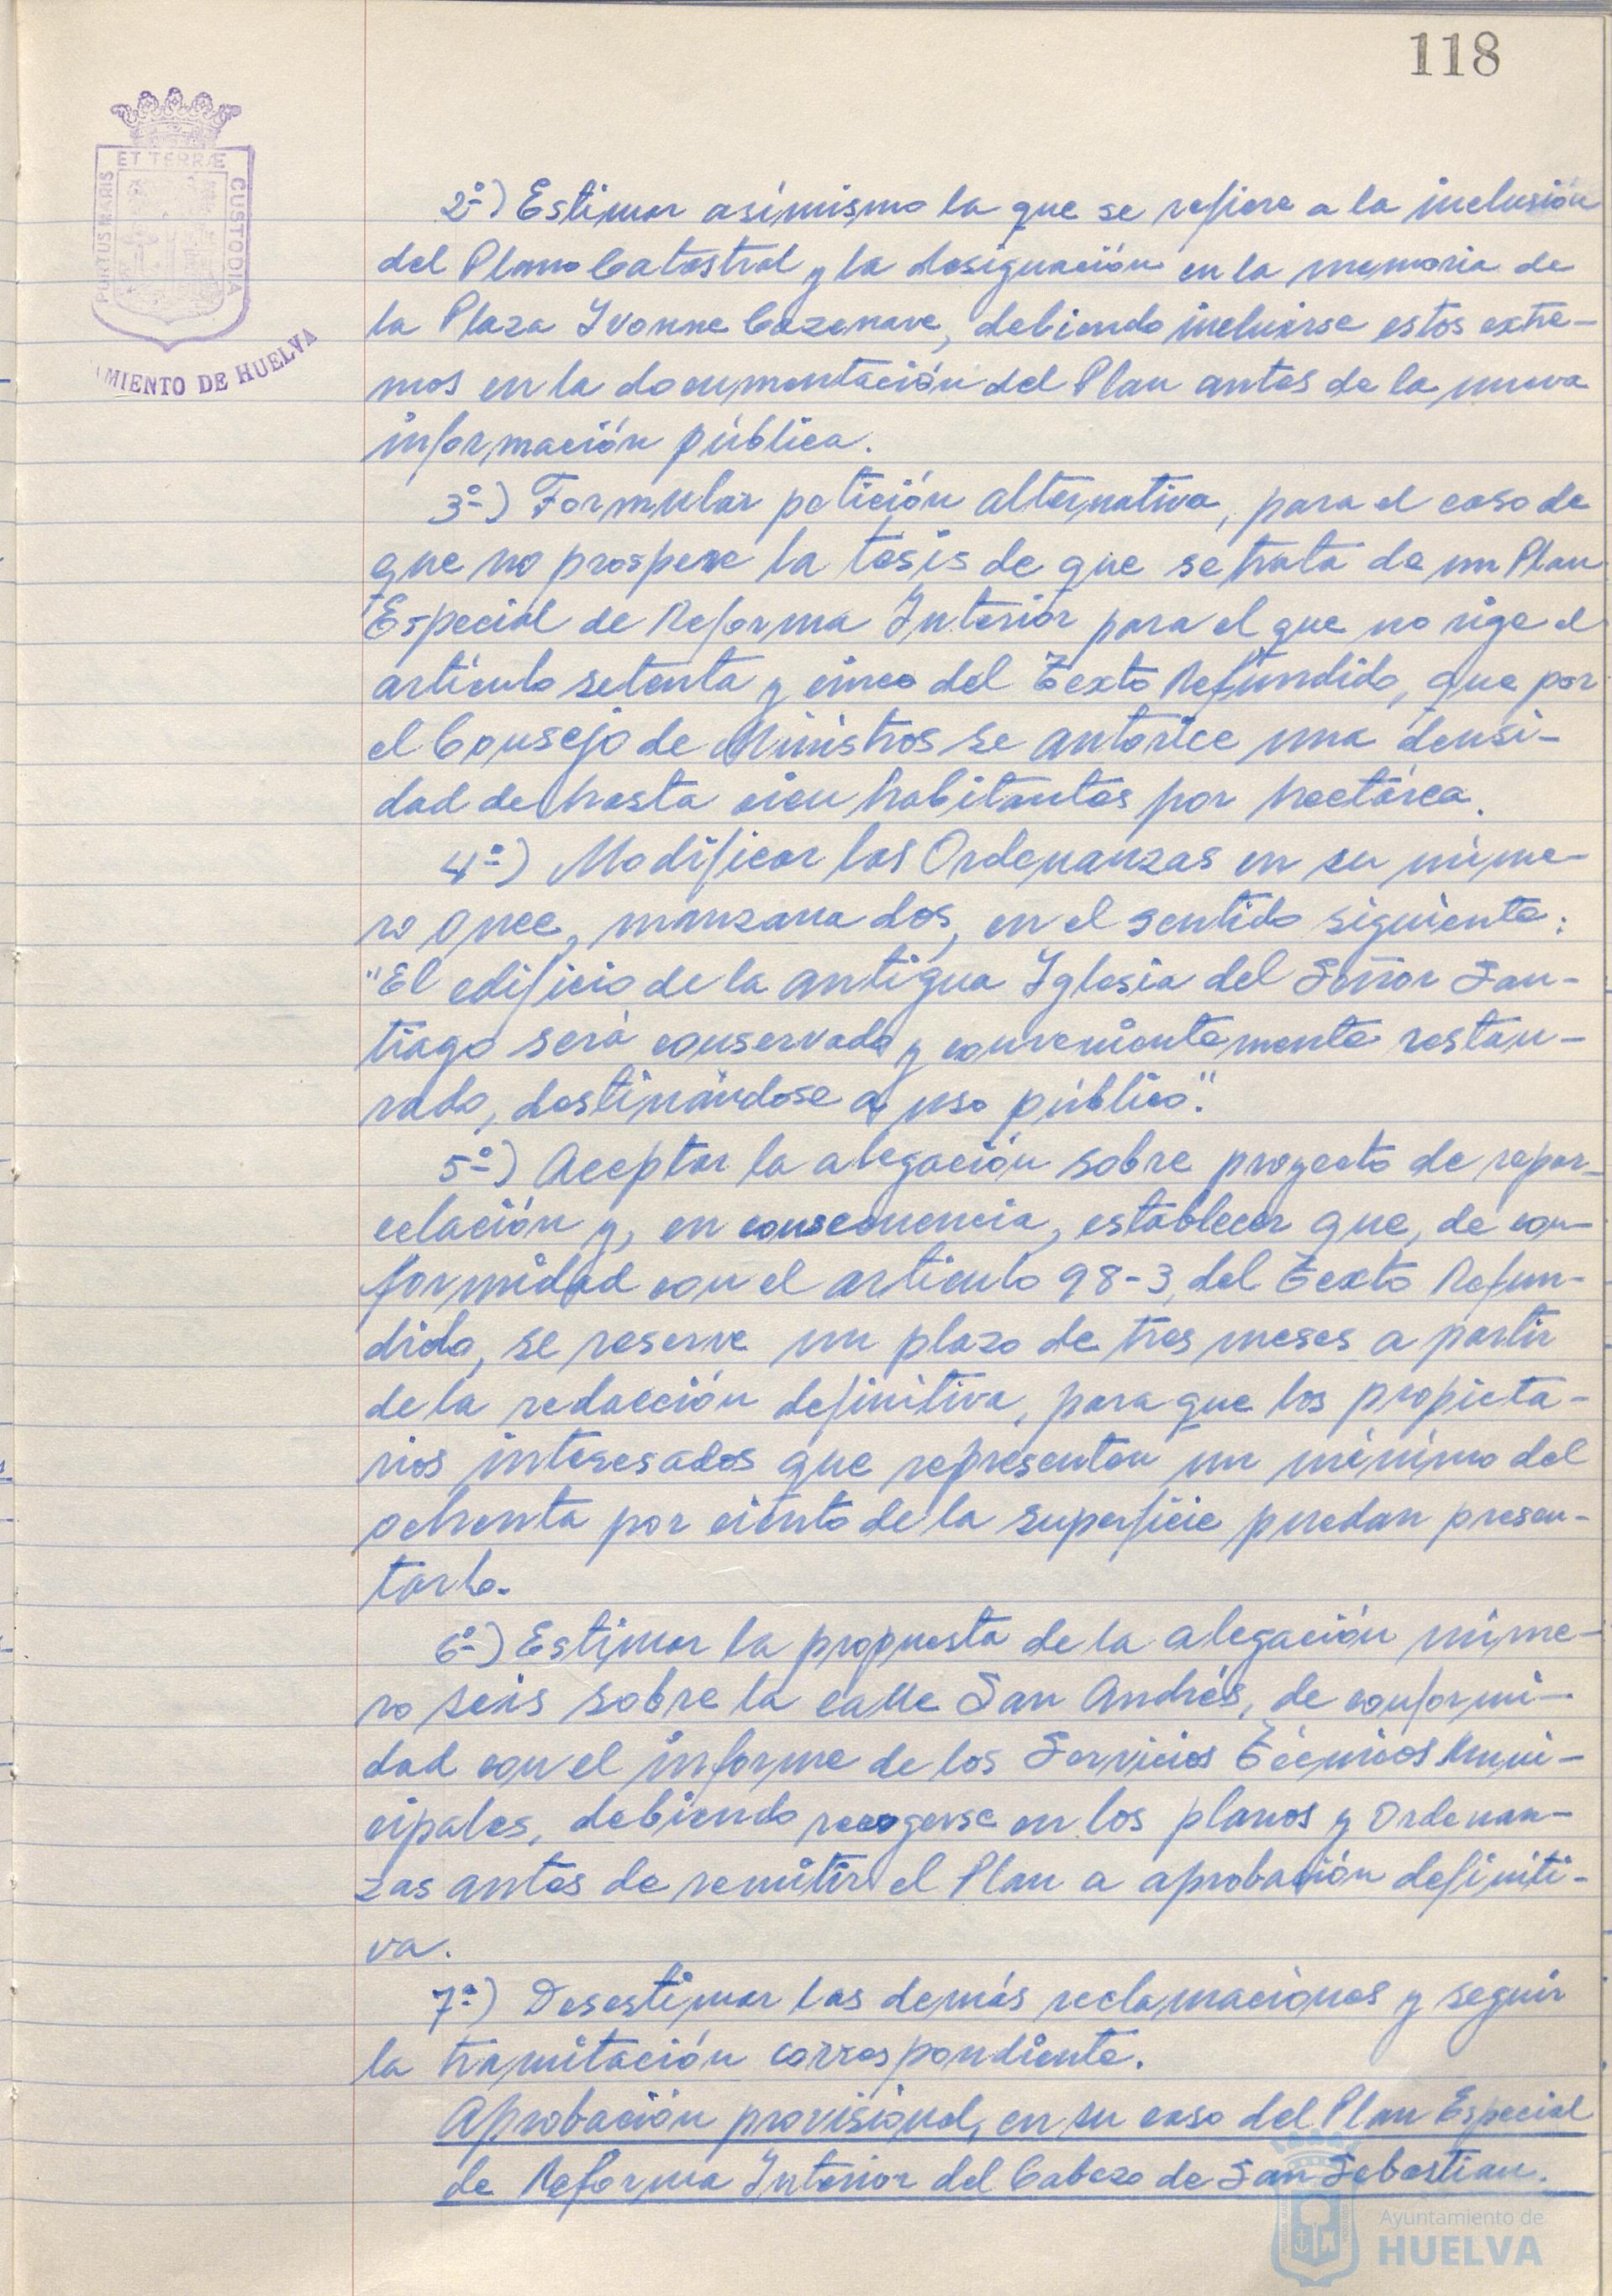 118
ET TERRÆ
PORTUS MARIS
CUSTODIA
AMIENTO DE HUELVA
2º) Estimar asimismo la que se refiere a la inclusión
del Plano Catastral y la designación en la memoria de
la Plaza Ivonne Cazenave, debiendo incluirse estos extre-
mos en la documentación del Plan antes de la nueva
información pública.
3º) Formular petición alternativa, para el caso de
que no prospere la tesis de que se trata de un Plan
Especial de Reforma Interior para el que no rige el
artículo setenta y cinco del Texto Refundido, que por
el Consejo de Ministros se autorice una densi-
dad de hasta cien habitantes por hectárea.
4º) Modificar las Ordenanzas en su núme-
ro once, manzana dos, en el sentido siguiente:
"El edificio de la antigua Iglesia del Señor San-
tiago será conservado y convenientemente restau-
rado, destinándose a uso público".
5º) Aceptar la alegación sobre proyecto de repar-
celación y, en consecuencia, establecer que, de con-
formidad con el artículo 98-3, del Texto Refun-
dido, se reserve un plazo de tres meses a partir
de la redacción definitiva, para que los propieta-
rios interesados que representen un mínimo del
ochenta por ciento de la superficie puedan presen-
tarlo.
6º) Estimar la propuesta de la alegación núme-
ro seis sobre la calle San Andrés, de conformi-
dad con el informe de los Servicios Técnicos Muni-
cipales, debiendo recogerse en los planos y Ordenan-
zas antes de remitir el Plan a aprobación definiti-
va.
7º) Desestimar las demás reclamaciones y seguir
la tramitación correspondiente.
Aprobación provisional, en su caso del Plan Especial
de Reforma Interior del Cabezo de San Sebastian.
Ayuntamiento de
HUELVA